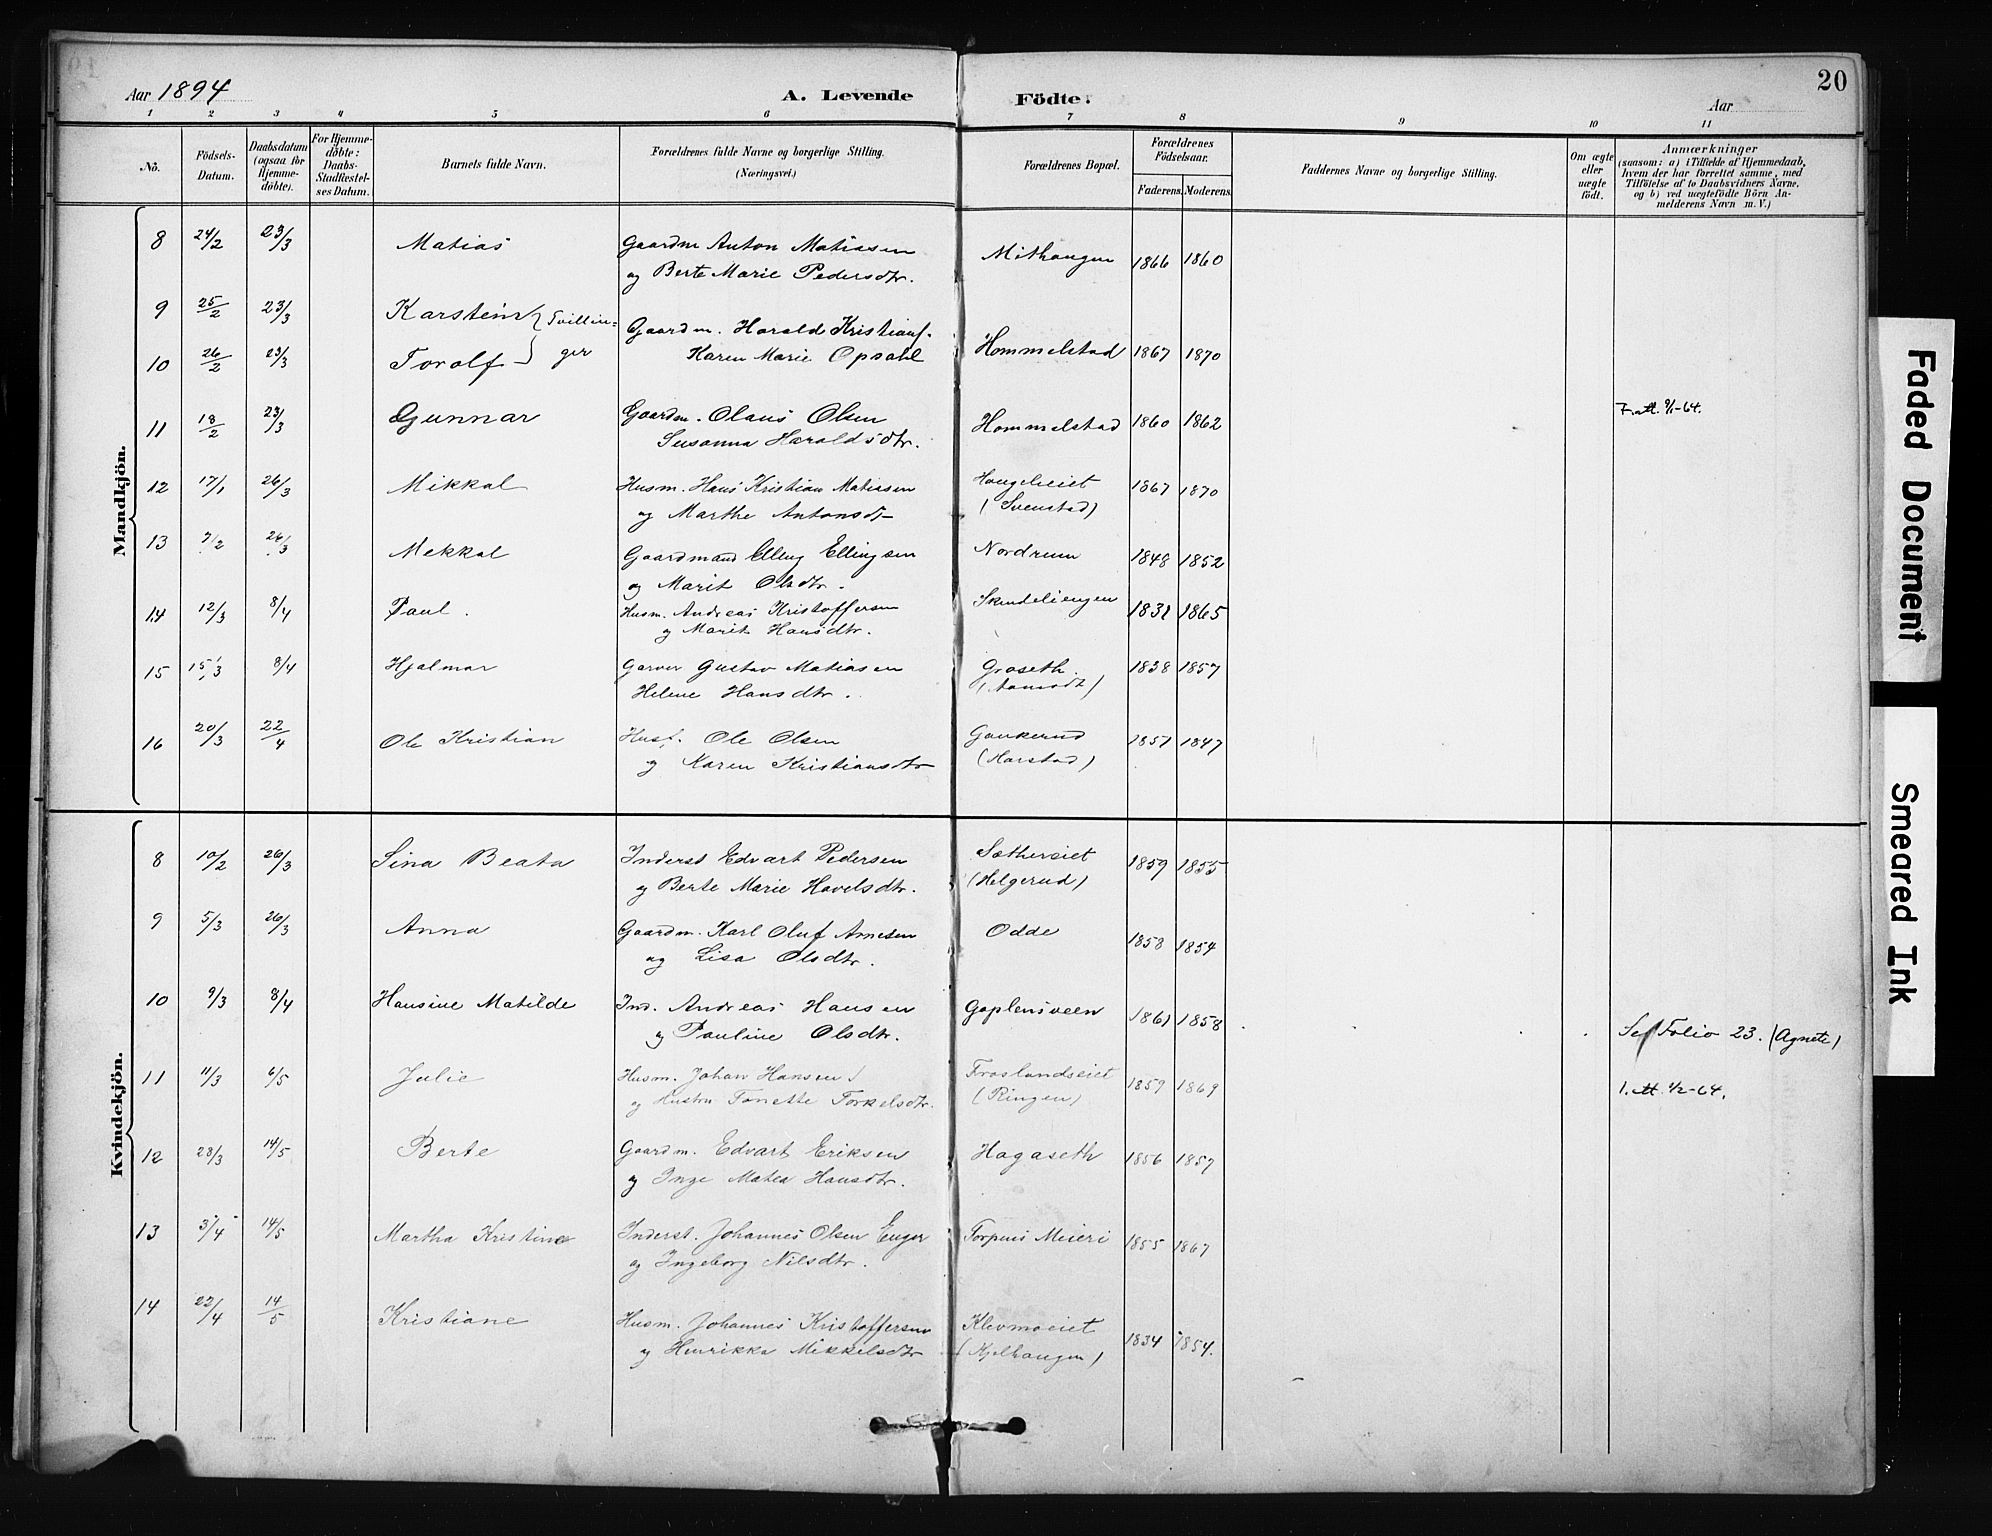 Aar 1894
A. Levende Födte.
Aar
20
1 2 3 4 5 6 7 8 9 10 11
No.
Födsels-Datum.
Daabsdatum (ogsaa for Hjemme-döbte).
For Hjemme-döbte: Daabs-Stadfestel-ses Datum.
Barnets fulde Navn.
Forældrenes fulde Navne og borgerlige Stilling.
(Næringsvei.)
Forældrenes Bopæl.
Forældrenes Födselsaar.
Faderens. Moderens.
Faddernes Navne og borgerlige Stilling.
Om ægte eller uægte födt.
Anmærkninger
(saasom: a) i Tilfælde af Hjemmedaab, hvem der har forrettet samme, med Tilföielse af to Daabsvidners Navne, og b) ved uægtefödte Börn An-melderens Navn m. V.)
Mandkjön.
8 24/2 23/3 Matias Gaardm Anton Matiasen Mithaugen 1866 1860
og Berte Marie Pedersdtr.
9 25/2 23/3 Karstein } Tvillin=
Gaardm. Harald Kristians. Hommelstad 1867 1870
10 26/2 23/3 Torolf } ger Karen Marie Opsahl
11 18/2 23/3 Gunnar Gaardm. Olaus Olsen Hommelstad 1860 1862
Susanna Haraldsdtr.
12 17/1 26/3 Mikkal Husm. Hans Kristian Matiasen Haugeleiet 1867 1870
og Marthe Antonsdtr (Svenstad)
13 7/2 26/3 Mekkal Gaardmand Elling Ellingsen Nordrum 1848 1852
og Marit Olsdtr.
14 12/3 8/4 Paul. Husm. Andreas Kristoffersen 1831 1865
og Marit Hansdtr.
15 15/3 8/4 Hjalmar Garver Gustav Matiasen Graseth 1838 1857
Helene Hansdtr.
16 20/3 22/4 Ole Kristian Husf. Ole Olsen Gaukerud 1851 1847
og Karen Kristiansdtr (Harstad)
Kvindekjön.
8 10/2 26/3 Sina Beata Inderst Edvart Pedersen Sæthereiet 1859 1855
og Berte Marie Havelsdtr. (Helgerud)
9 5/3 26/3 Anna Gaardm. Karl Oluf Arnesen Odde 1858 1854
og Lisa Olsdtr.
10 9/3 8/4 Hansine Matilde Ind. Andreas Hansen Gaplensveen 1861 1858
og Pauline Olsdtr. Se Folio 23. (Agnete)
11 11/3 6/5 Julie Husm. Johan Hansen Froslandseiet 1859 1869 1. att. 1/2-64.
og Hustru Tonette Torkelsdtr. (Ringen)
12 28/3 14/5 Berte Gaardm. Edvart Eriksen Hagaseth 1856 1857
og Inge Matea Hansdtr.
13 3/4 14/5 Martha Kristine Inderst. Johannes Olsen Enger Torpens Meieri 1855 1867
og Ingeborg Nilsdtr.
14 22/4 14/5 Kristiane Husm. Johannes Kristoffersen Klevmoeiet 1834 1854.
og Henrikka Mikkelsdtr (Kjelhaugen)
Faded Document
Smeared Ink